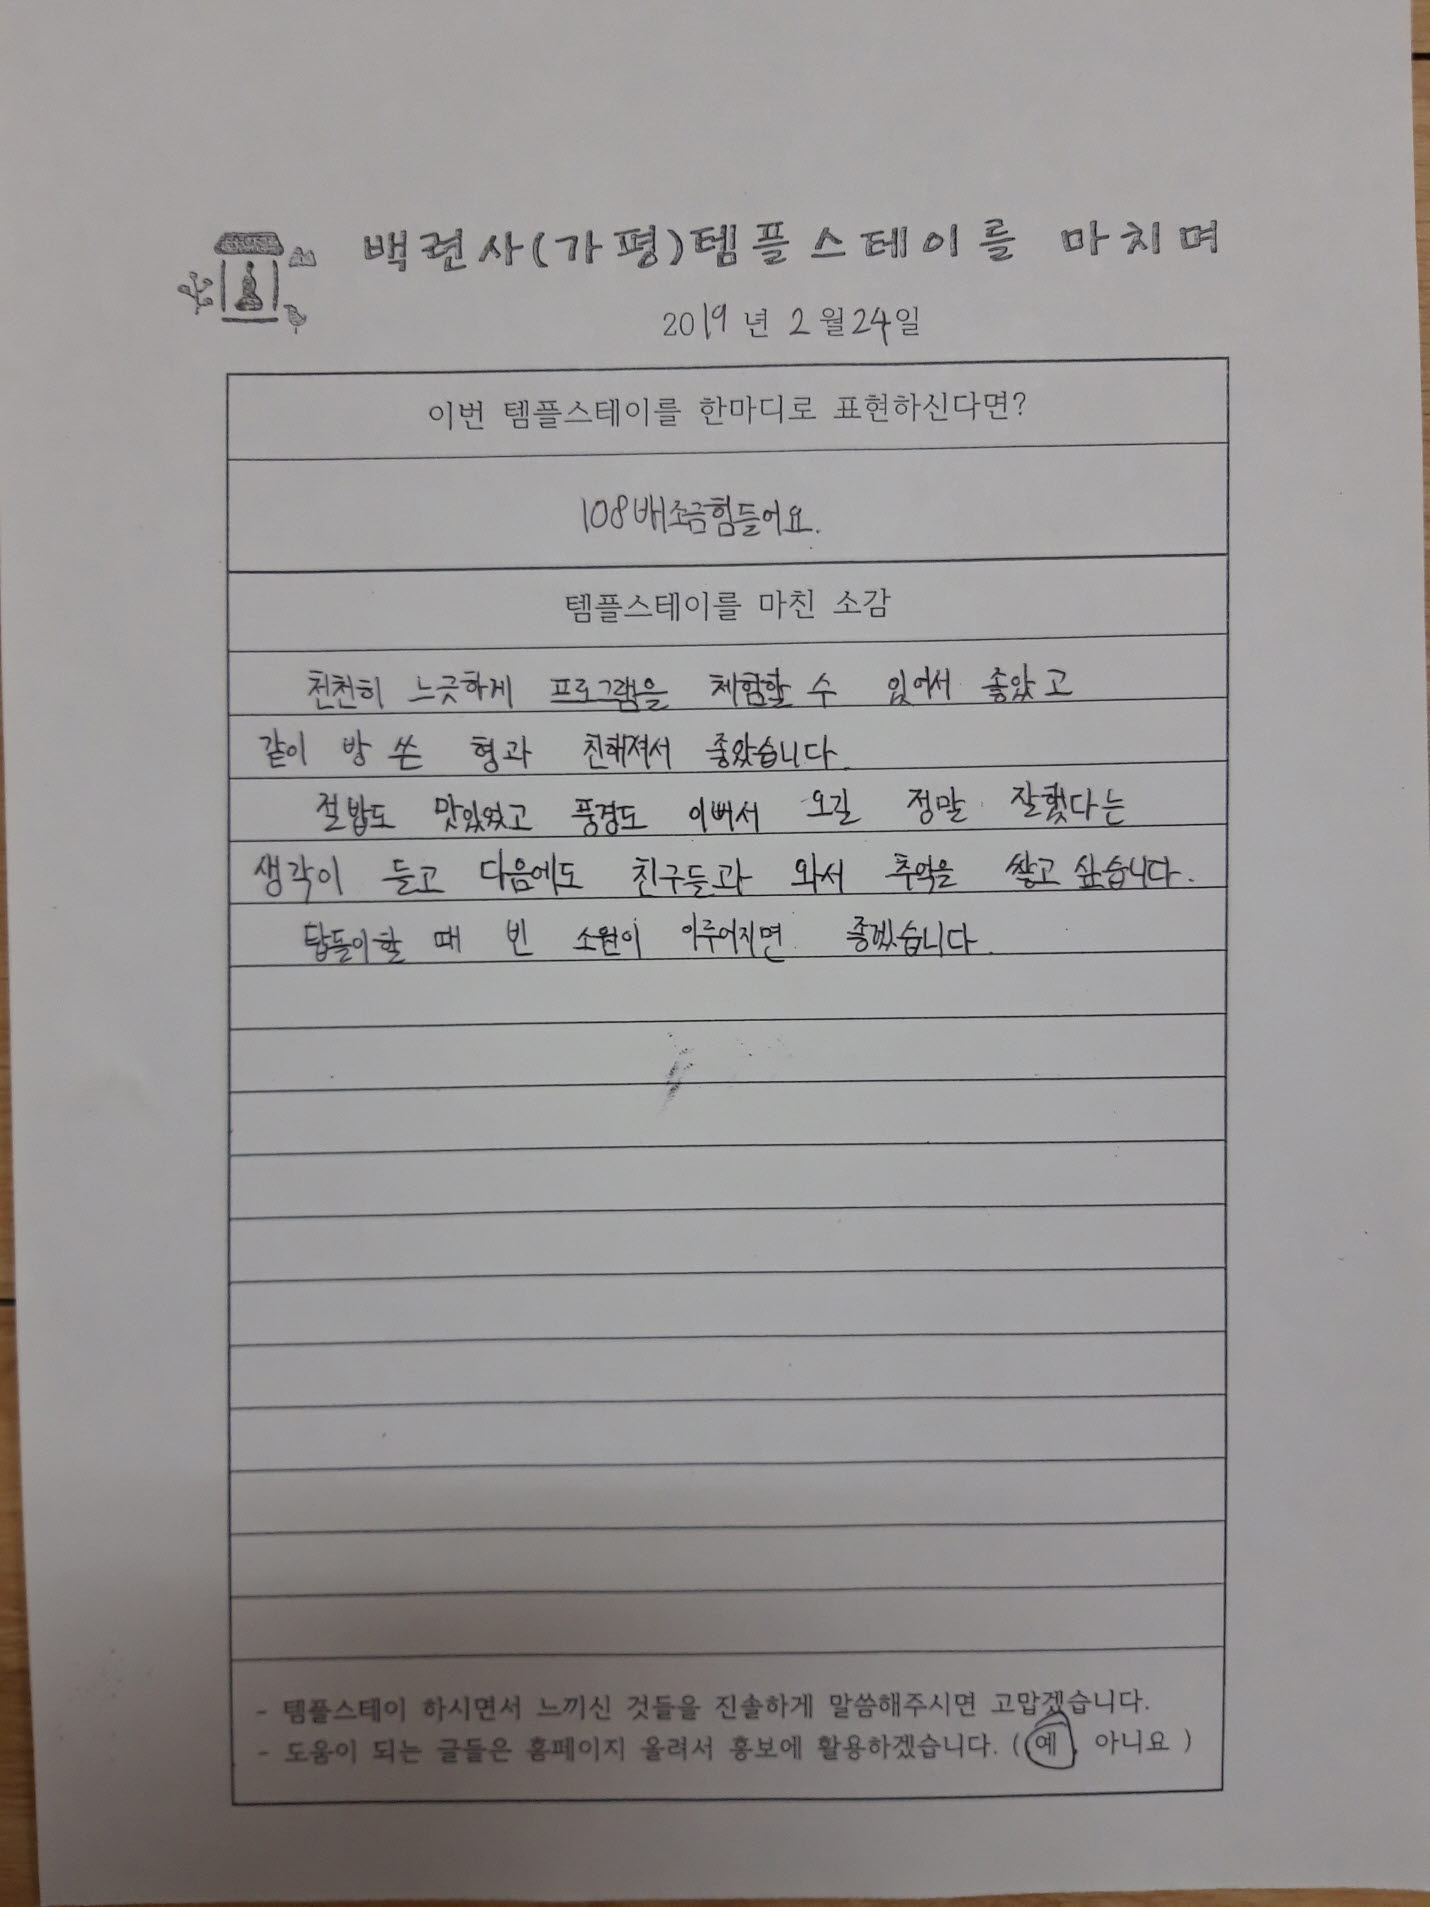 백련사(가평)템플스테이를 마치며
2019년 2월 24일
이번 템플스테이를 한마디로 표현하신다면?
108배조금힘들어요.
템플스테이를 마친 소감
천천히 느긋하게 프로그램을 체험할 수 있어서 좋았고
같이 방 쓴 형과 친해져서 좋았습니다.
절밥도 맛있었고 풍경도 이뻐서 오길 정말 잘했다는
생각이 들고 다음에도 친구들과 와서 추억을 쌓고 싶습니다.
탑돌이할 때 빈 소원이 이루어지면 좋겠습니다.
- 템플스테이 하시면서 느끼신 것들을 진솔하게 말씀해주시면 고맙겠습니다.
- 도움이 되는 글들은 홈페이지 올려서 홍보에 활용하겠습니다. ( 예, 아니요 )